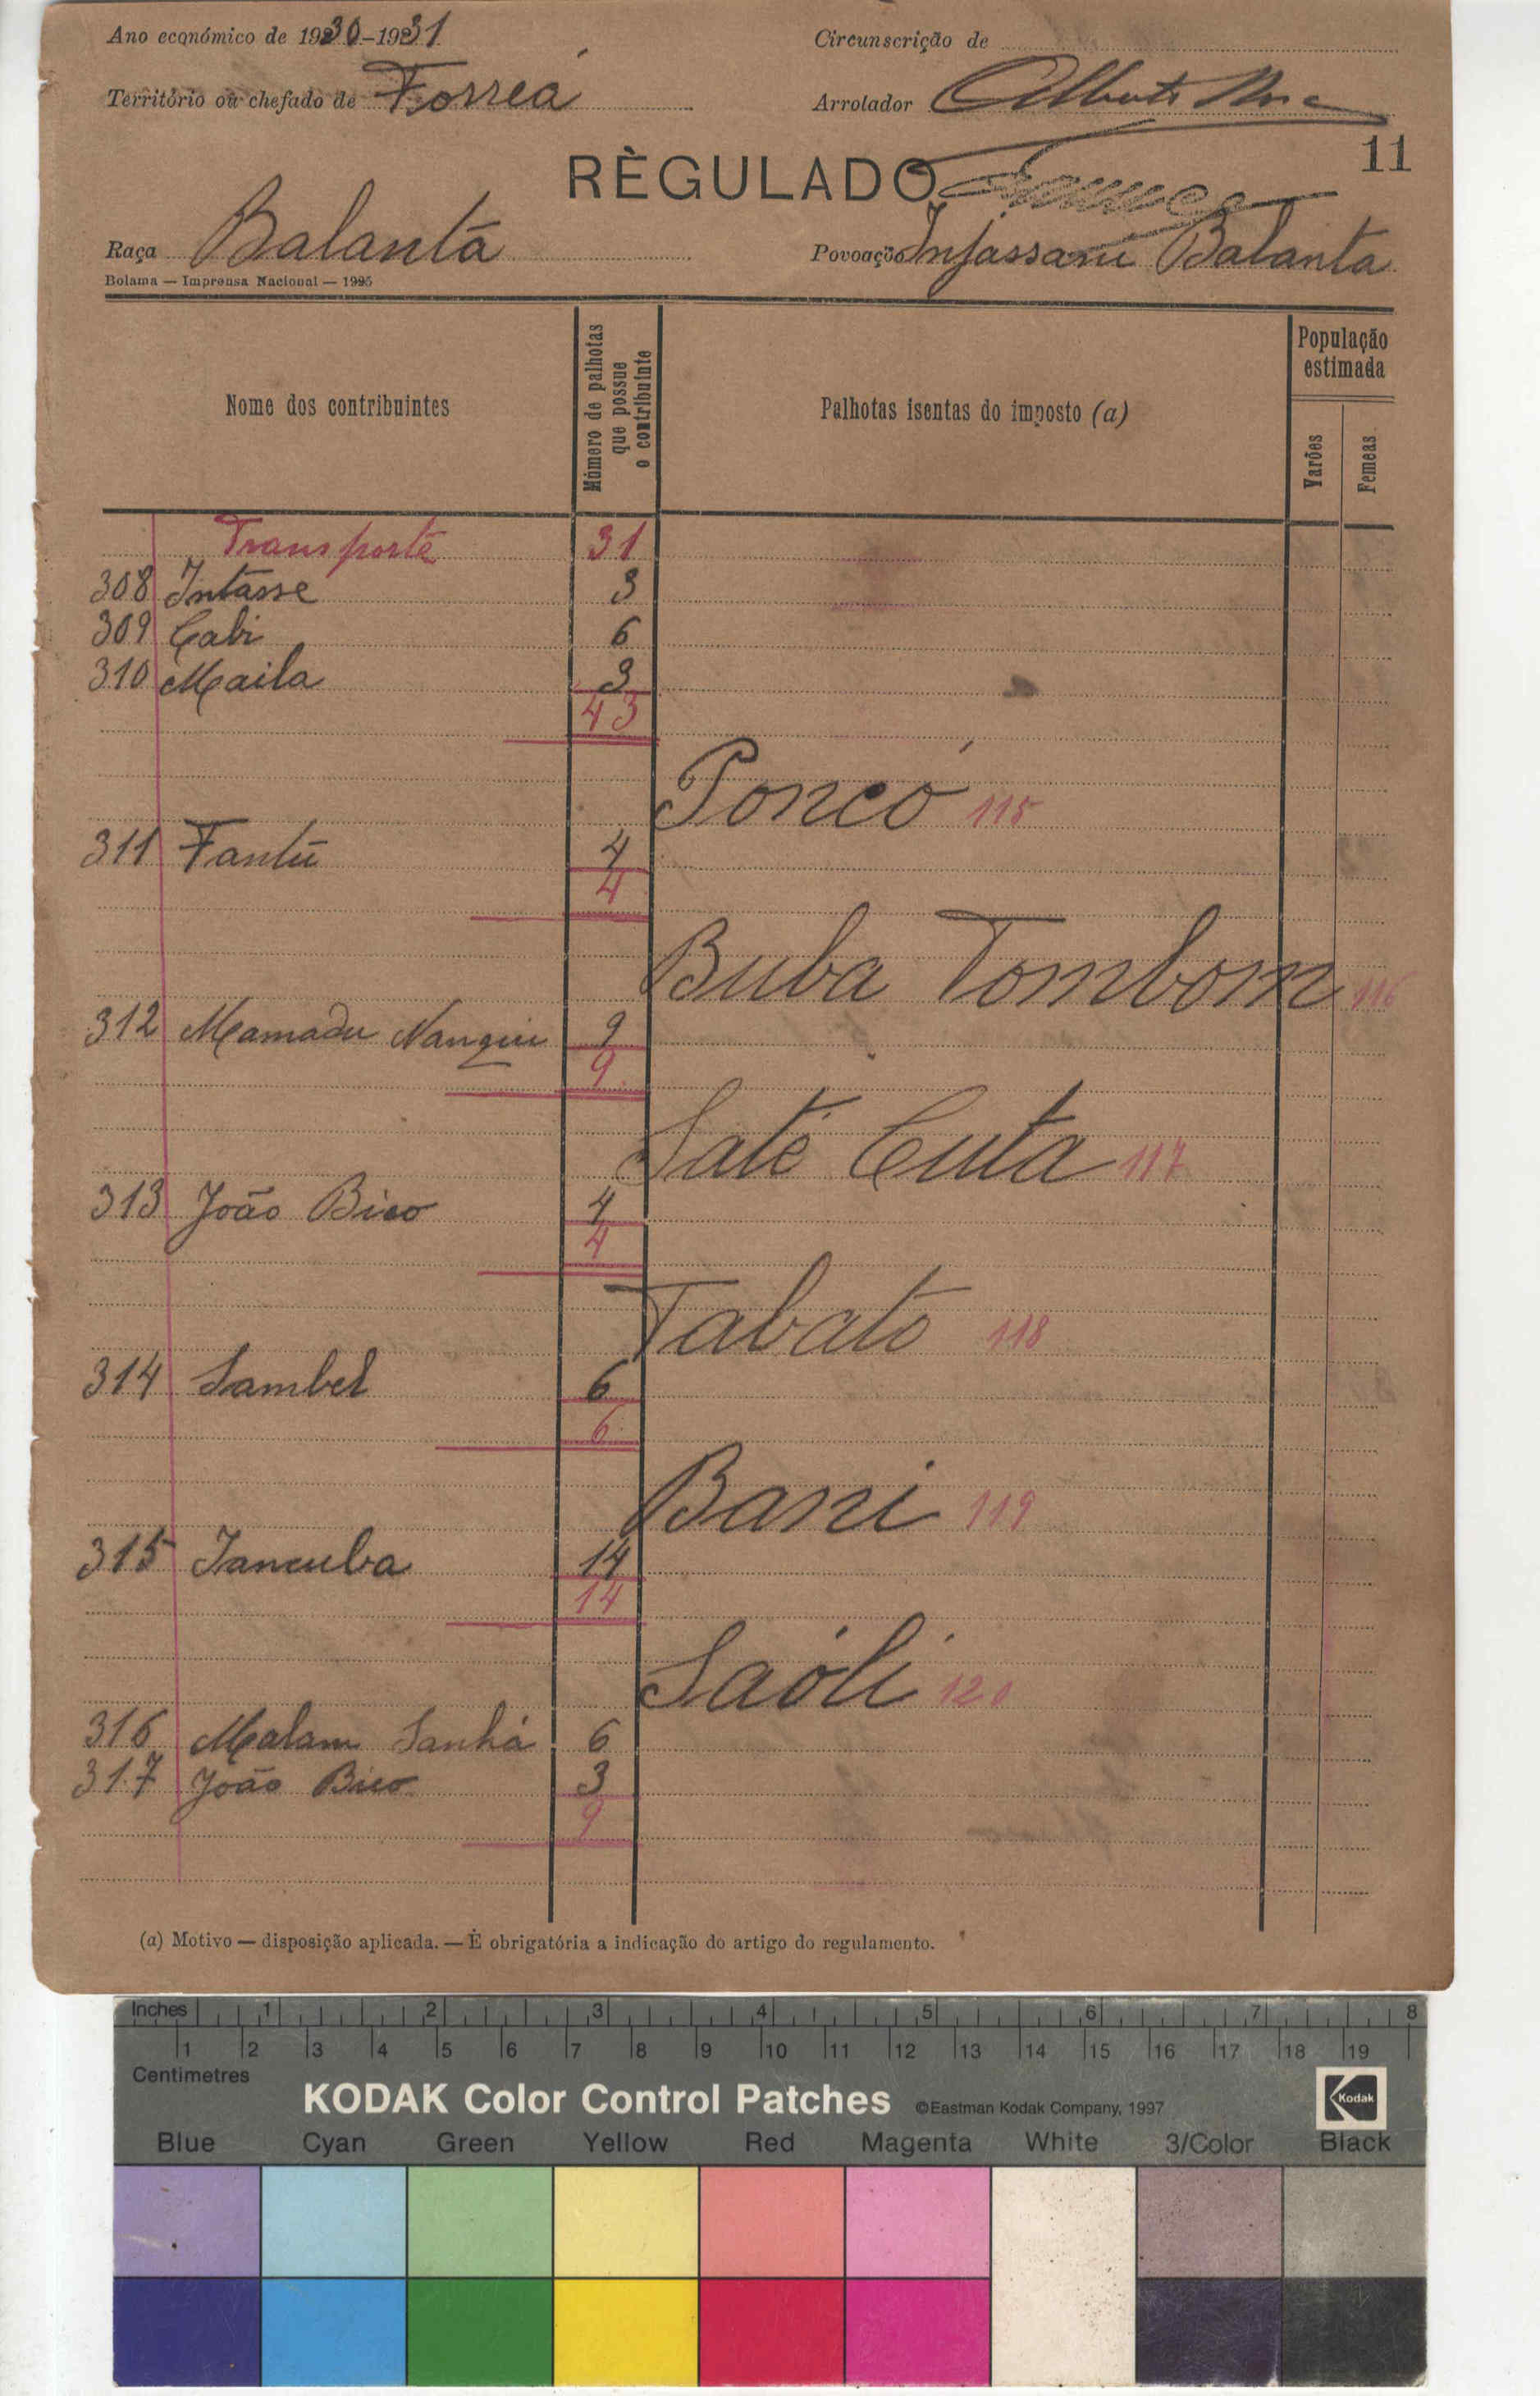 Ano económico de 1930-1931 Circunscrição de
Território ou chefado de Forreá Arrolador Alberto
11
RÈGULADO
Raça Balanta Povoação Injassani Balanta
Bolama — Imprensa Nacional — 1925
Nome dos contribuintes
Número de palhotas
que possue
o contribuinte
Palhotas isentas do imposto (a)
População
estimada
Varões
Femeas
Transporte 31
308 Intasse 3
309 Cabi 6
310 Maila 3
43
Poncó 115
311 Fantú 4
4
Buba Tombom 116
312 Mamadu Nanqui 9
9
Saté Cuta 117
313 João Bico 4
4
Tabato 118
314 Sambel 6
6
Bani 119
315 Iancuba 14
14
Saóli 120
316 Malam Sanhá 6
317 João Bico 3
9
(a) Motivo — disposição aplicada. — É obrigatória a indicação do artigo do regulamento.
Inches 1 2 3 4 5 6 7 8
1 2 3 4 5 6 7 8 9 10 11 12 13 14 15 16 17 18 19
Centimetres
KODAK Color Control Patches ©Eastman Kodak Company, 1997 Kodak
Blue Cyan Green Yellow Red Magenta White 3/Color Black